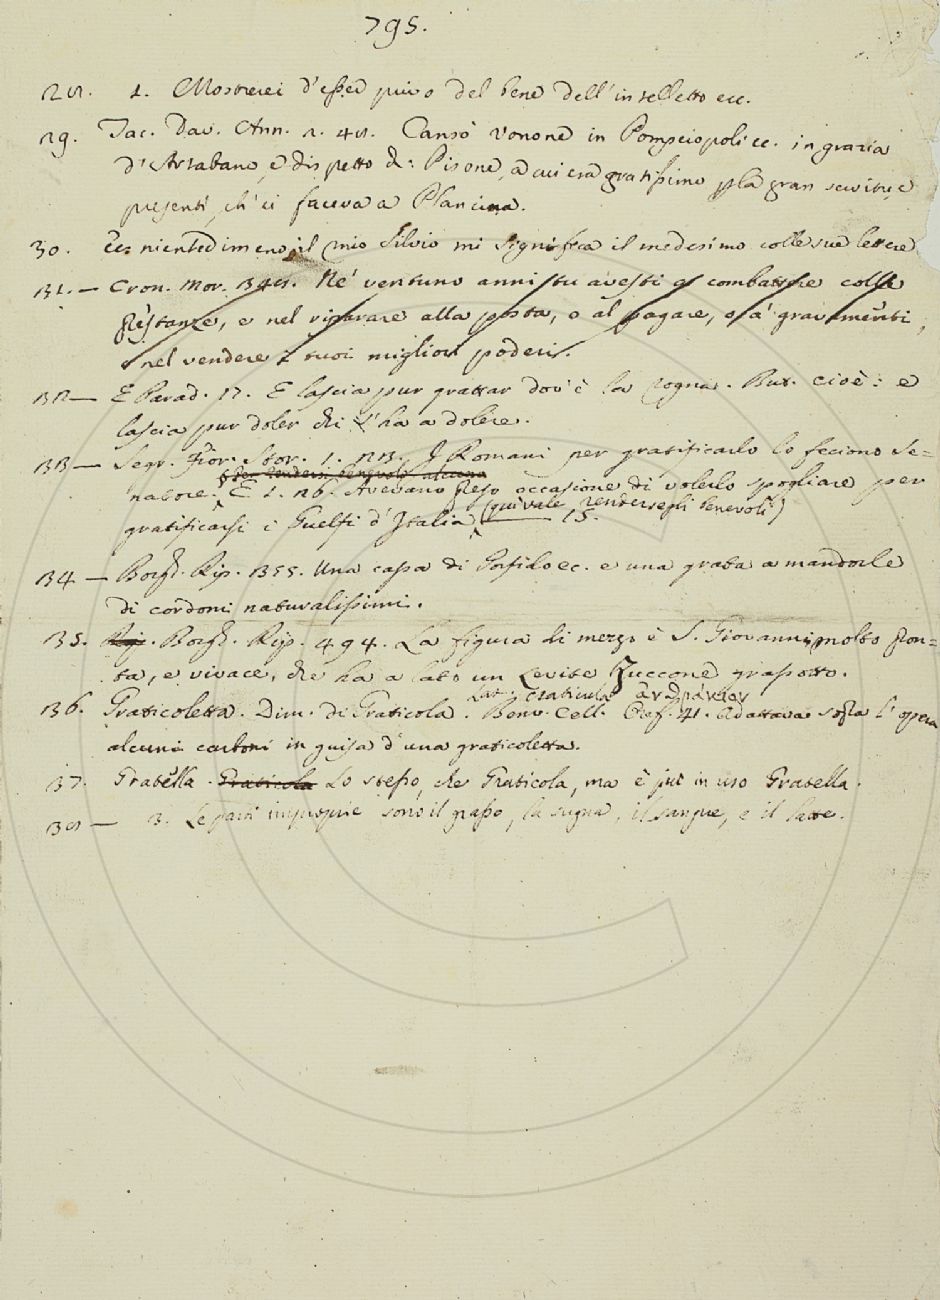 795.
28. 1. Mostrerei d'esser privo del bene dell'intelletto ecc.
29. Tac. Dav. Ann. 2. 48. Cansò Vonone in Pompeiopoli ec. in grazia
d'Artabano, e dispetto di Pisone, a cui era gratissimo pla gran servitù, e
presenti, ch'ei faceva a Plancina.
30. Ec. nientedimeno il mio Silvio mi significa il medesimo colle sue lettere
31. — Cron. Mor. 348. Nè ventuno anni stu avesti a combattere colle
prestanze, e nel riparare alla posta, o al pagare, o a' gravamenti,
o nel vendere i tuoi migliori poderi.
32 — E Parad. 17. E lascia pur grattar dov'è la rogna. But. cioè: e
lascia pur doler chi l'ha a dolere.
33 — Segr. Fior. Stor. 1. 23. I Romani per gratificarlo lo feciono Se=
per rendersi benevolo alcuno
natore. E 1. 26. Avevano preso occasione di volerlo spogliare per
gratificarsi i Guelfi d'Italia (qui vale, rendersegli benevoli) — 15.
34 — Borgh. Rip. 355. Una cassa di Porfido ec. e una grata a mandorle
di cordoni naturalissimi.
35. Rip. Borgh. Rip. 494. La figura di mezzo è S. Giovanni molto pron=
ta, e vivace, che ha a lato un Levite Zuccone grassotto.
36. Graticoletta. Dim. di Graticola. Lat. craticula Benv. Cell. Oref. 41. Adattava sopra l'opera
alcuni carboni in guisa d'una graticoletta.
37. Gratella. Graticola Lo stesso, che Graticola, ma è più in uso Gratella.
38 — 3. Le parti improprie sono il grasso, la sugna, il sangue, e il latte.